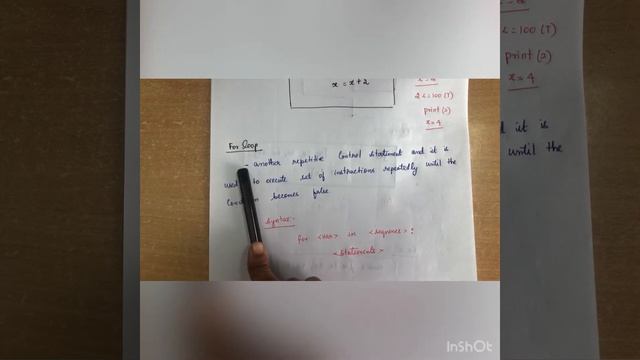 x = x+2
2 <= 100 (T)
print (2)
x = 4
For loop
- another repetitive Control Statement and it is
used to execute set of instructions repeatedly until the
becomes false
Syntax:-
for <var> in <sequence> :
<statements>
2 <= 100 (T)
print (2)
x = 4
it is
until the
InShOt